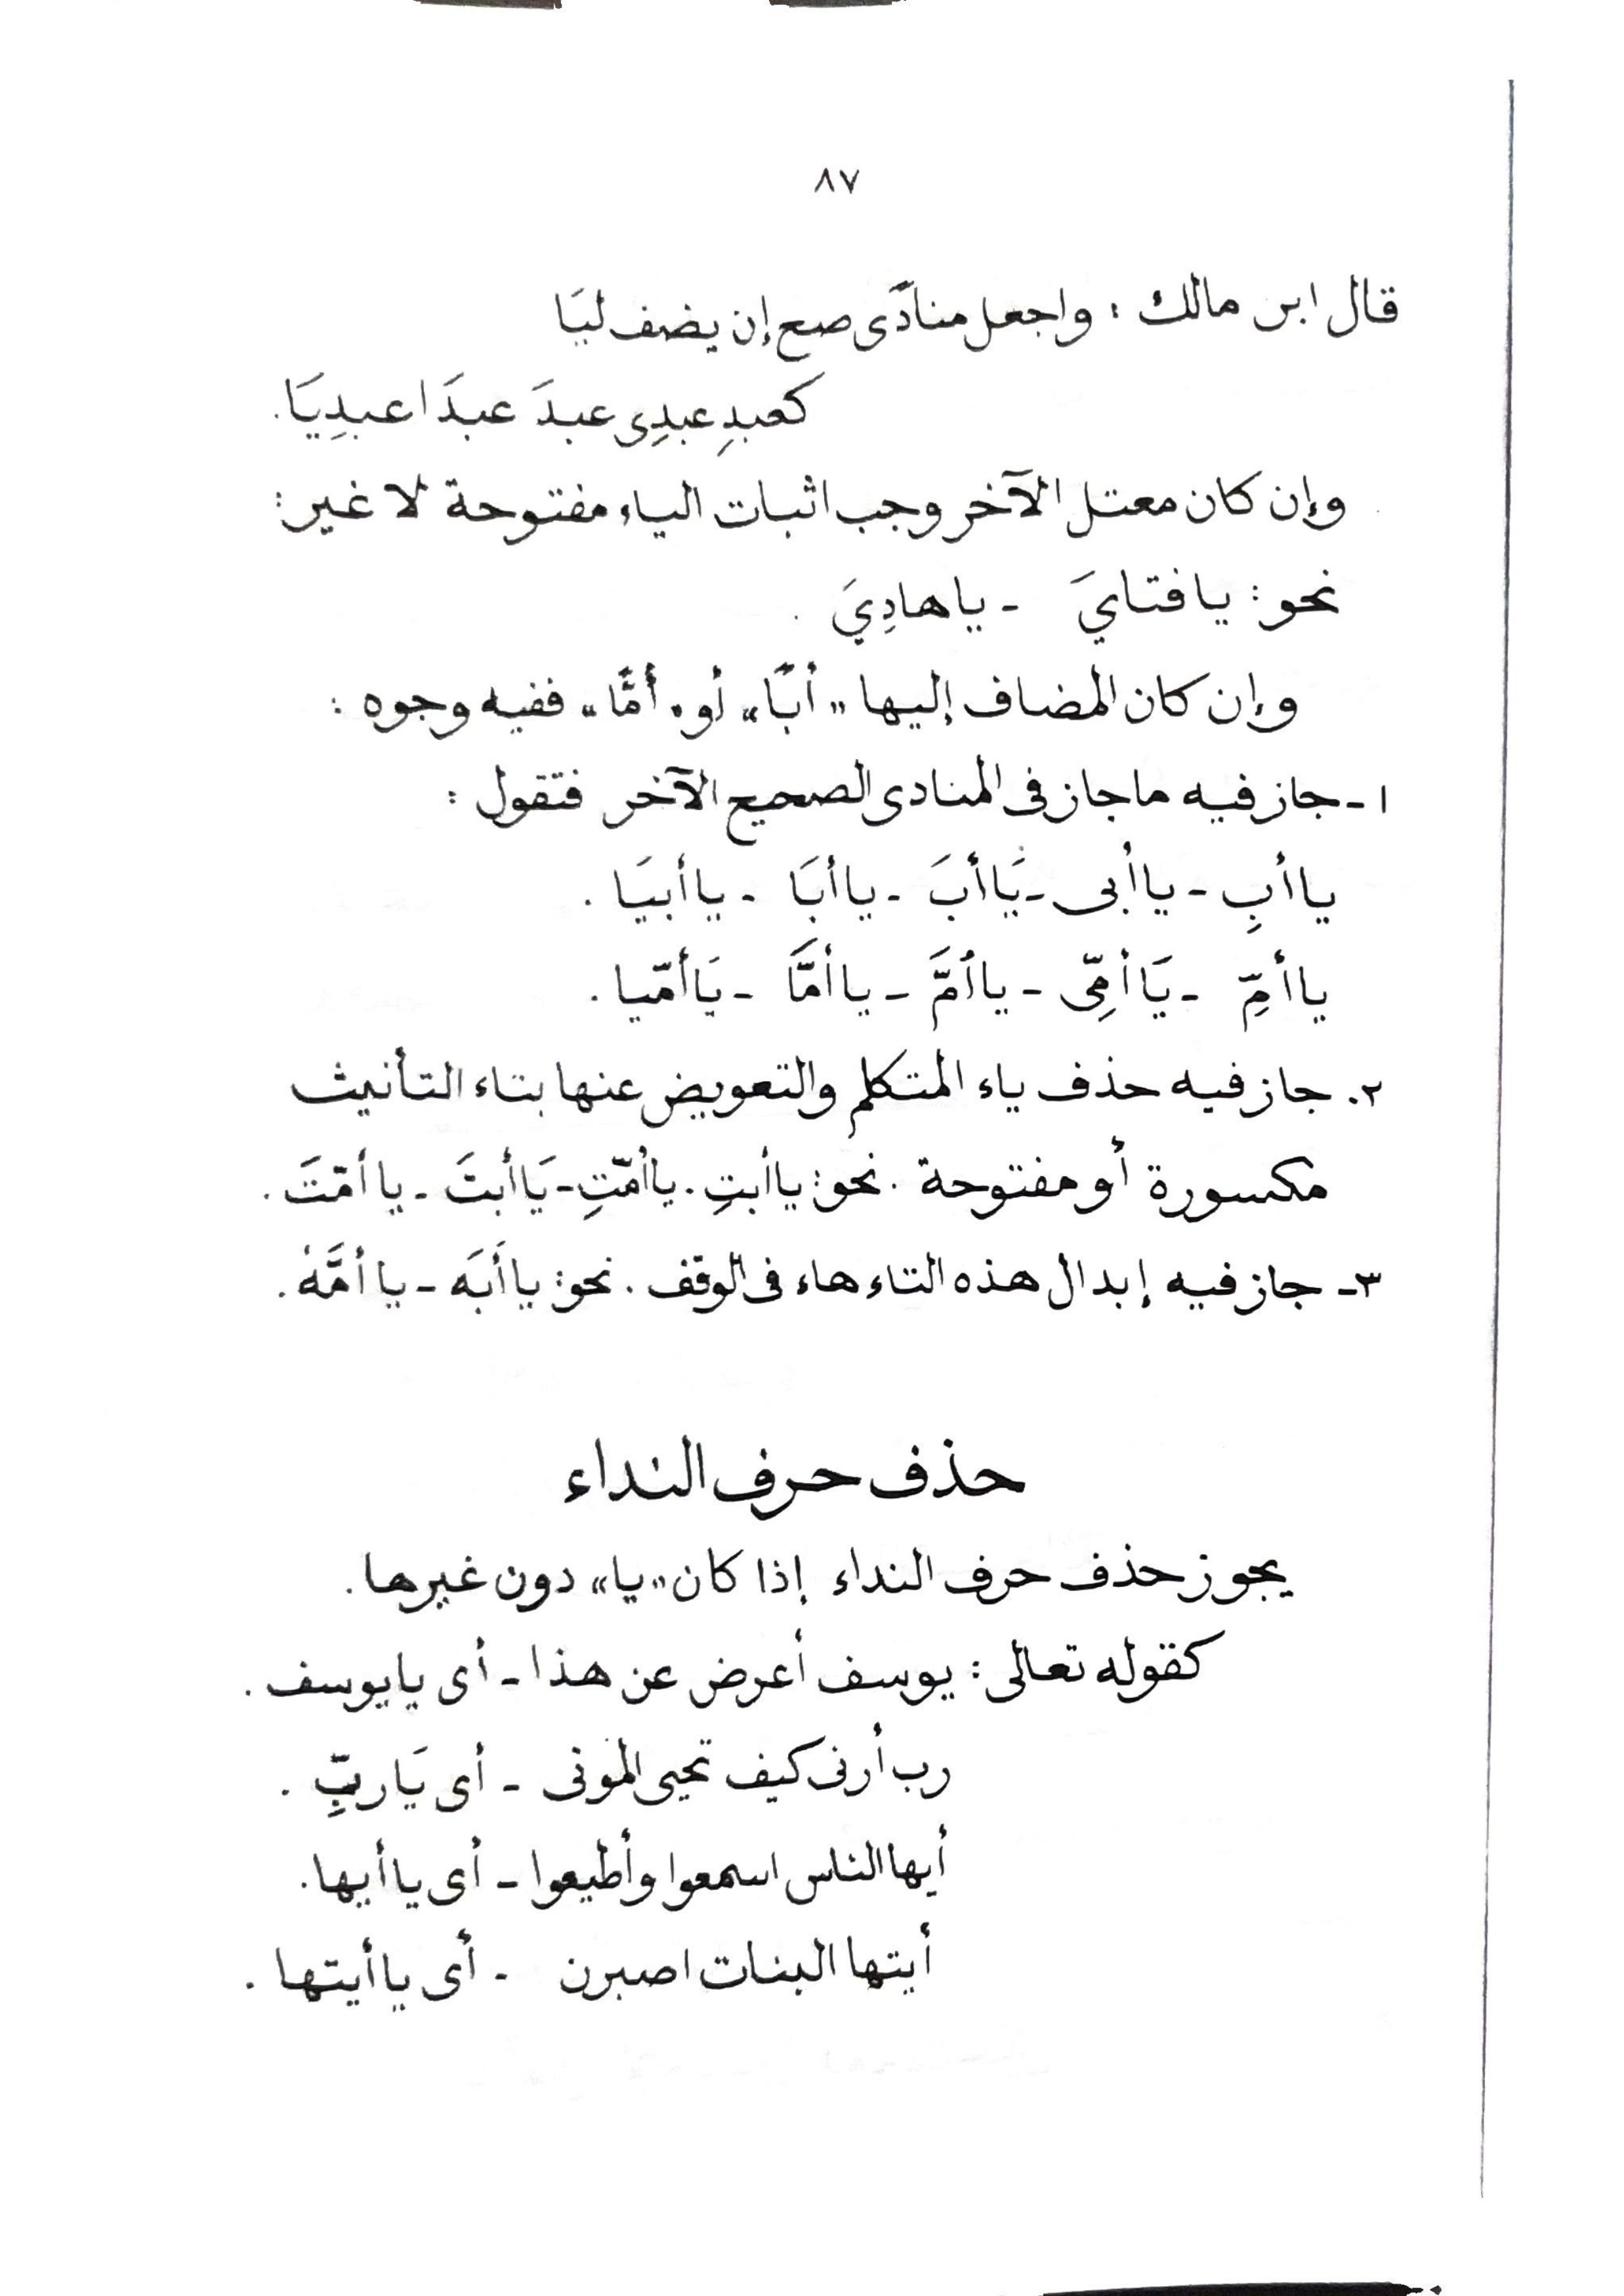 ٨٧
قال ابن مالك : واجعل منادًى صح إن يضف ليَا
كعبدِ عبدِى عبدَ عبدَا عبدِيَا.
وإن كان معتل الآخر وجب اثبات الياء مفتوحة لا غير:
نحو : يا فتايَ - يا هادِيَ .
وإن كان المضاف إليها «أبًا» أو «أمًّا» ففيه وجوه :
١- جاز فيه ما جاز فى المنادى الصحيح الآخر فتقول :
يا أبِ - يا أبى - يَا أبَ - يا أبَا - يا أبيَا .
يا أمِّ - يَا أمِّى - يا أمَّ - يا أمَّا - يَا أمّيا .
٢. جاز فيه حذف ياء المتكلم والتعويض عنها بتاء التأنيث
مكسورة أو مفتوحة . نحو : يا أبتِ . يا أمّتِ - يَا أبتَ - يا أمّتَ .
٣- جاز فيه إبدال هذه التاء هاء فى الوقف . نحو : يا أبَه - يا أمَّهْ .
حذف حرف النداء
يجوز حذف حرف النداء إذا كان «يا» دون غيرها .
كقوله تعالى : يوسف أعرض عن هذا - أى يا يوسف .
رب أرنى كيف تحيى الموتى - أى يَا ربِّ .
أيها الناس اسمعوا وأطيعوا - أى يا أيها .
أيتها البنات اصبرن - أى يا أيتها .